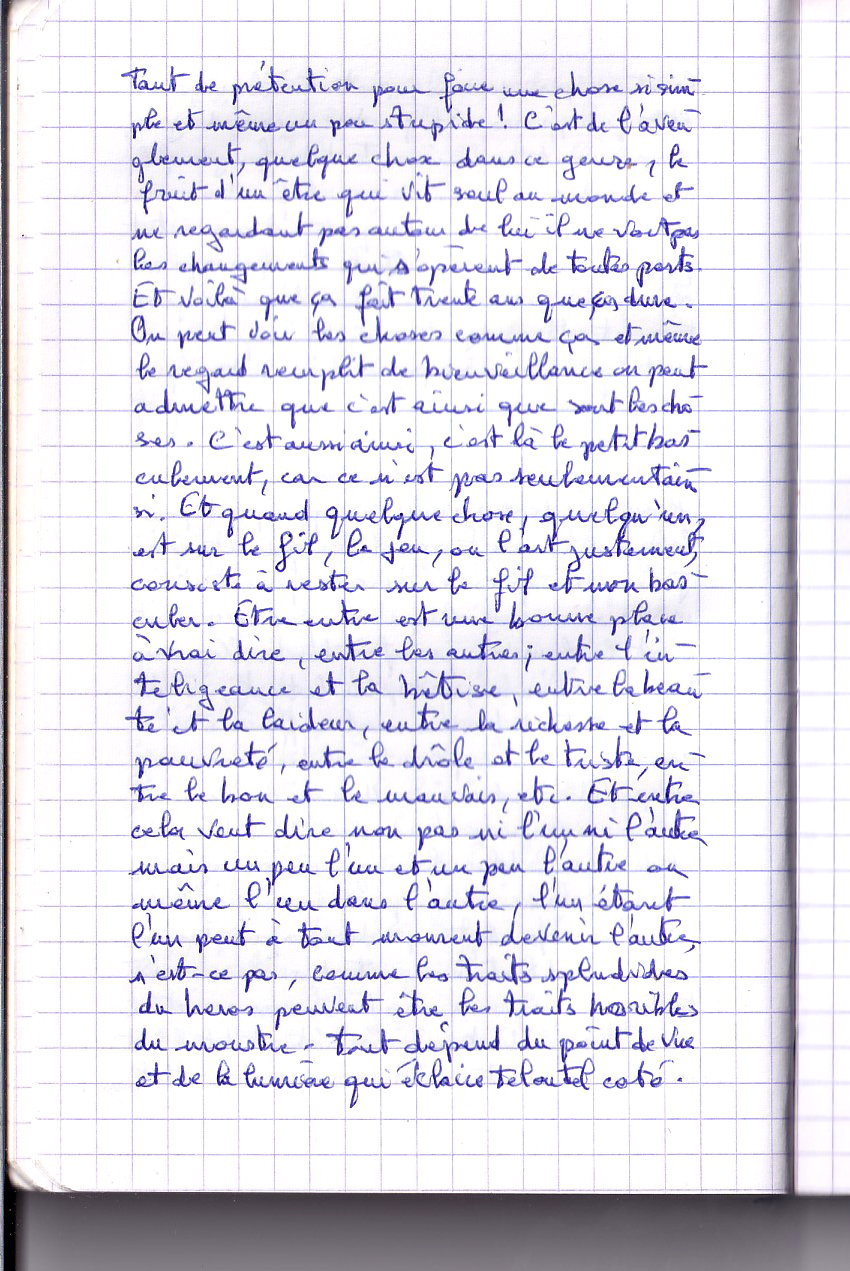 Tant de prétention pour faire une chose si sim-
ple et même un peu stupide! C'est de l'aveu-
glement, quelque chose dans ce genre, le
fruit d'un être qui vit seul au monde et
ne regardant pas autour de lui il ne voit pas
les changements qui s'opèrent de toutes parts.
Et voilà que ça fait trente ans que ça dure.
On peut voir les choses comme ça et même
le regard remplit de bienveillance on peut
admettre que c'est ainsi que sont les cho-
ses. C'est aussi ainsi, c'est là le petit bas-
culement, car ce n'est pas seulement ain-
si. Et quand quelque chose, quelqu'un,
est sur le fil, le jeu, ou l'art justement,
consiste à rester sur le fil et non bas-
culer. Etre entre est une bonne place
à vrai dire, entre les autres; entre l'in-
teligeance et la bêtise, entre la beau-
té et la laideur, entre la richesse et la
pauvreté, entre le drôle et le triste, en-
tre le bon et le mauvais, etc. Et entre
cela veut dire non pas ni l'un ni l'autre
mais un peu l'un et un peu l'autre ou
même l'un dans l'autre, l'un étant
l'un peut à tout moment devenir l'autre,
n'est-ce pas, comme les traits splendides
du heros peuvent être les traits horribles
du monstre - tout dépend du point de vue
et de la lumière qui éclaire tel ou tel coté.